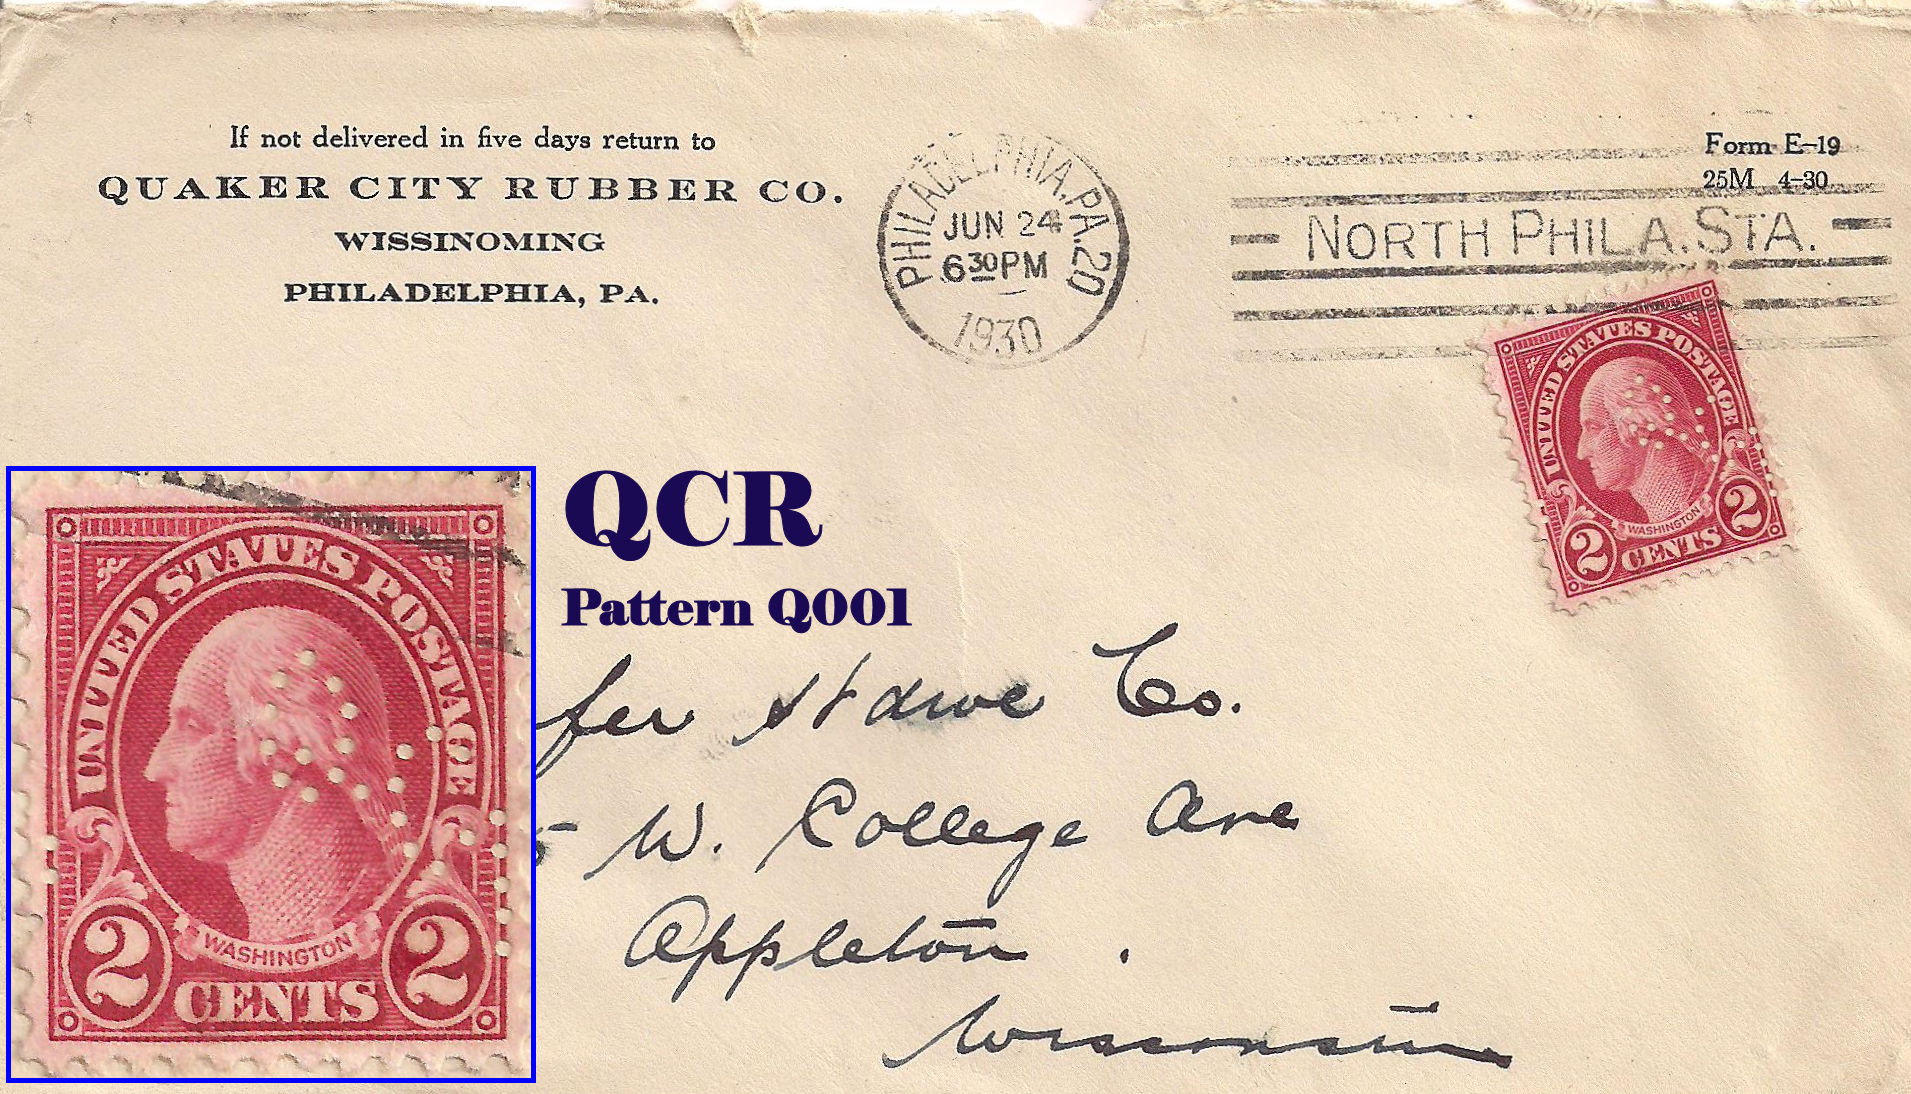 If not delivered in five days return to
QUAKER CITY RUBBER CO.
WISSINOMING
PHILADELPHIA, PA.
PHILADELPHIA, PA. 20
JUN 24
6 30 PM
1930
Form E-19
25M 4-30
NORTH PHILA. STA.
UNITED STATES POSTAGE
WASHINGTON
2 CENTS 2
QCR
Pattern Q001
UNITED STATES POSTAGE
WASHINGTON
2 CENTS 2
fer Hdwe Co.
5 W. College Ave
Appleton .
Wisconsin